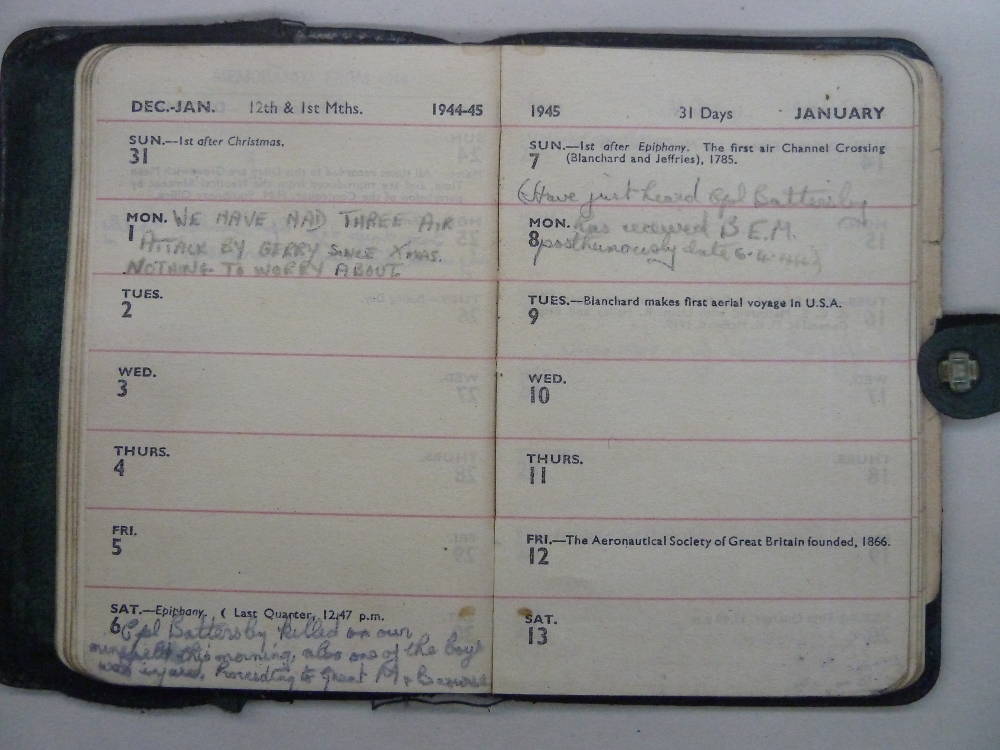 DEC.-JAN. 12th & 1st Mths. 1944-45
SUN.—1st after Christmas.
31
MON. WE HAVE HAD THREE AIR
1 ATTACK BY GERRY SINCE XMAS.
NOTHING TO WORRY ABOUT
TUES.
2
WED.
3
THURS.
4
FRI.
5
SAT.—Epiphany. ( Last Quarter, 12.47 p.m.
6 Cpl Battersby killed on our
minefield this morning, also one of the boys
was injured. Proceeding to
1945 31 Days JANUARY
SUN.—1st after Epiphany. The first air Channel Crossing
7 (Blanchard and Jeffries), 1785.
(Have just heard Cpl Battersby
MON. has received B.E.M.
8 posthumously date
TUES.—Blanchard makes first aerial voyage in U.S.A.
9
WED.
10
THURS.
11
FRI.—The Aeronautical Society of Great Britain founded, 1866.
12
SAT.
13